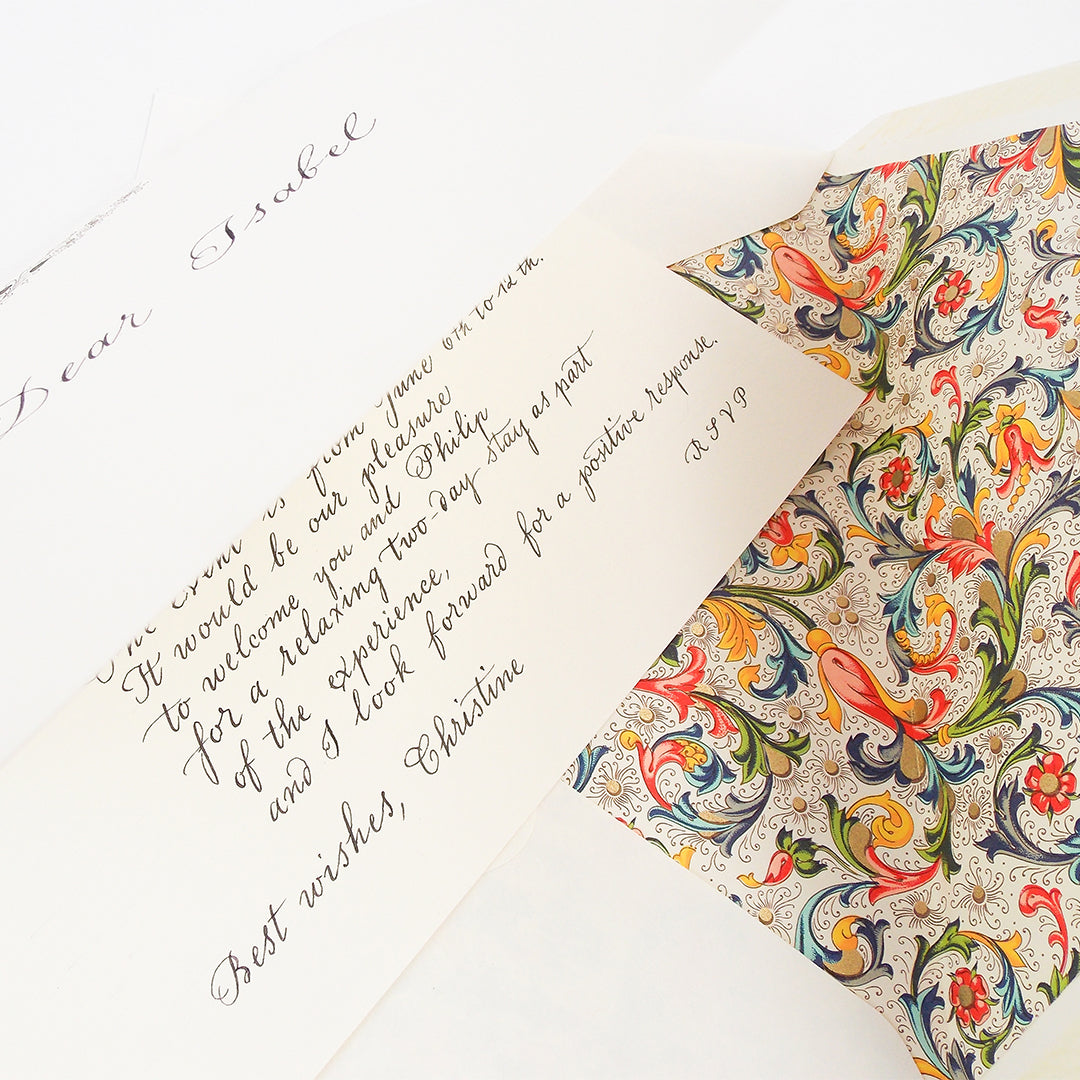 Dear Isabel
from June 6th to 12th.
It would be our pleasure
to welcome you and Philip
for a relaxing two-day stay as part
of the experience,
and I look forward for a positive response.
RSVP
Best wishes, Christine